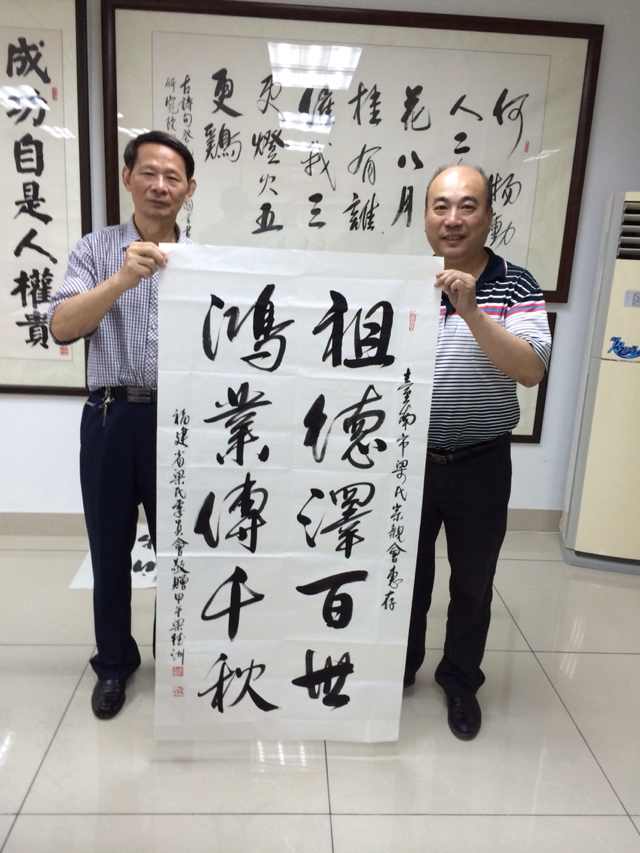 臺南市梁氏宗親會惠存
祖德澤百世
鴻業傳千秋
福建省梁氏委員會敬贈甲午梁
何物動
人二
花八月
桂有誰
催我三
更燈火五
更鷄
古詩句
成功自是人權貴